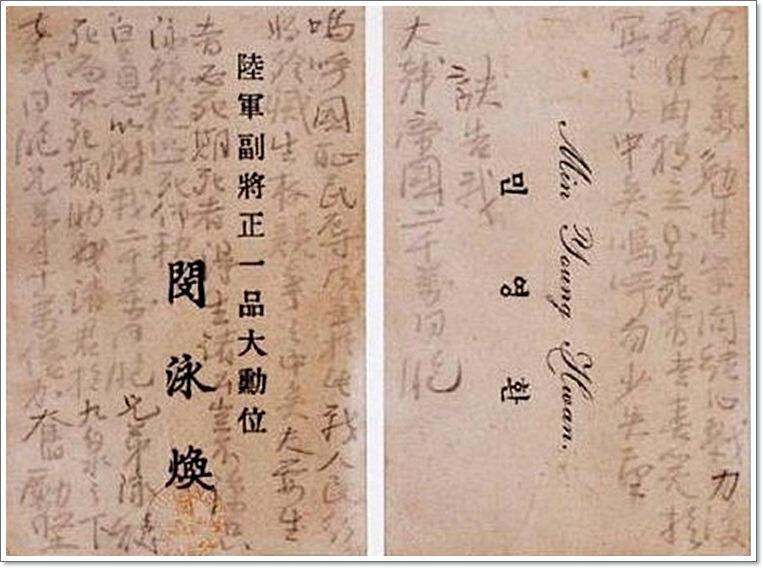 陸軍副將正一品大勳位
閔泳煥
嗚呼國恥民辱乃至於此我人民行
將殄滅生存競爭之中矣夫要生
者必死期死者得生諸公豈不諒只
泳煥徒以一死仰報
皇恩以謝我二千萬同胞兄弟泳煥
死而不死期助我諸君於九泉之下
我同胞兄弟千萬億加奮勵堅
Min Young Hwan.
민영환
乃志氣勉其學問結心戮力復
我自由獨立即死者當喜笑於
冥々之中矣嗚呼勿少失望
訣告我
大韓帝國二千萬同胞